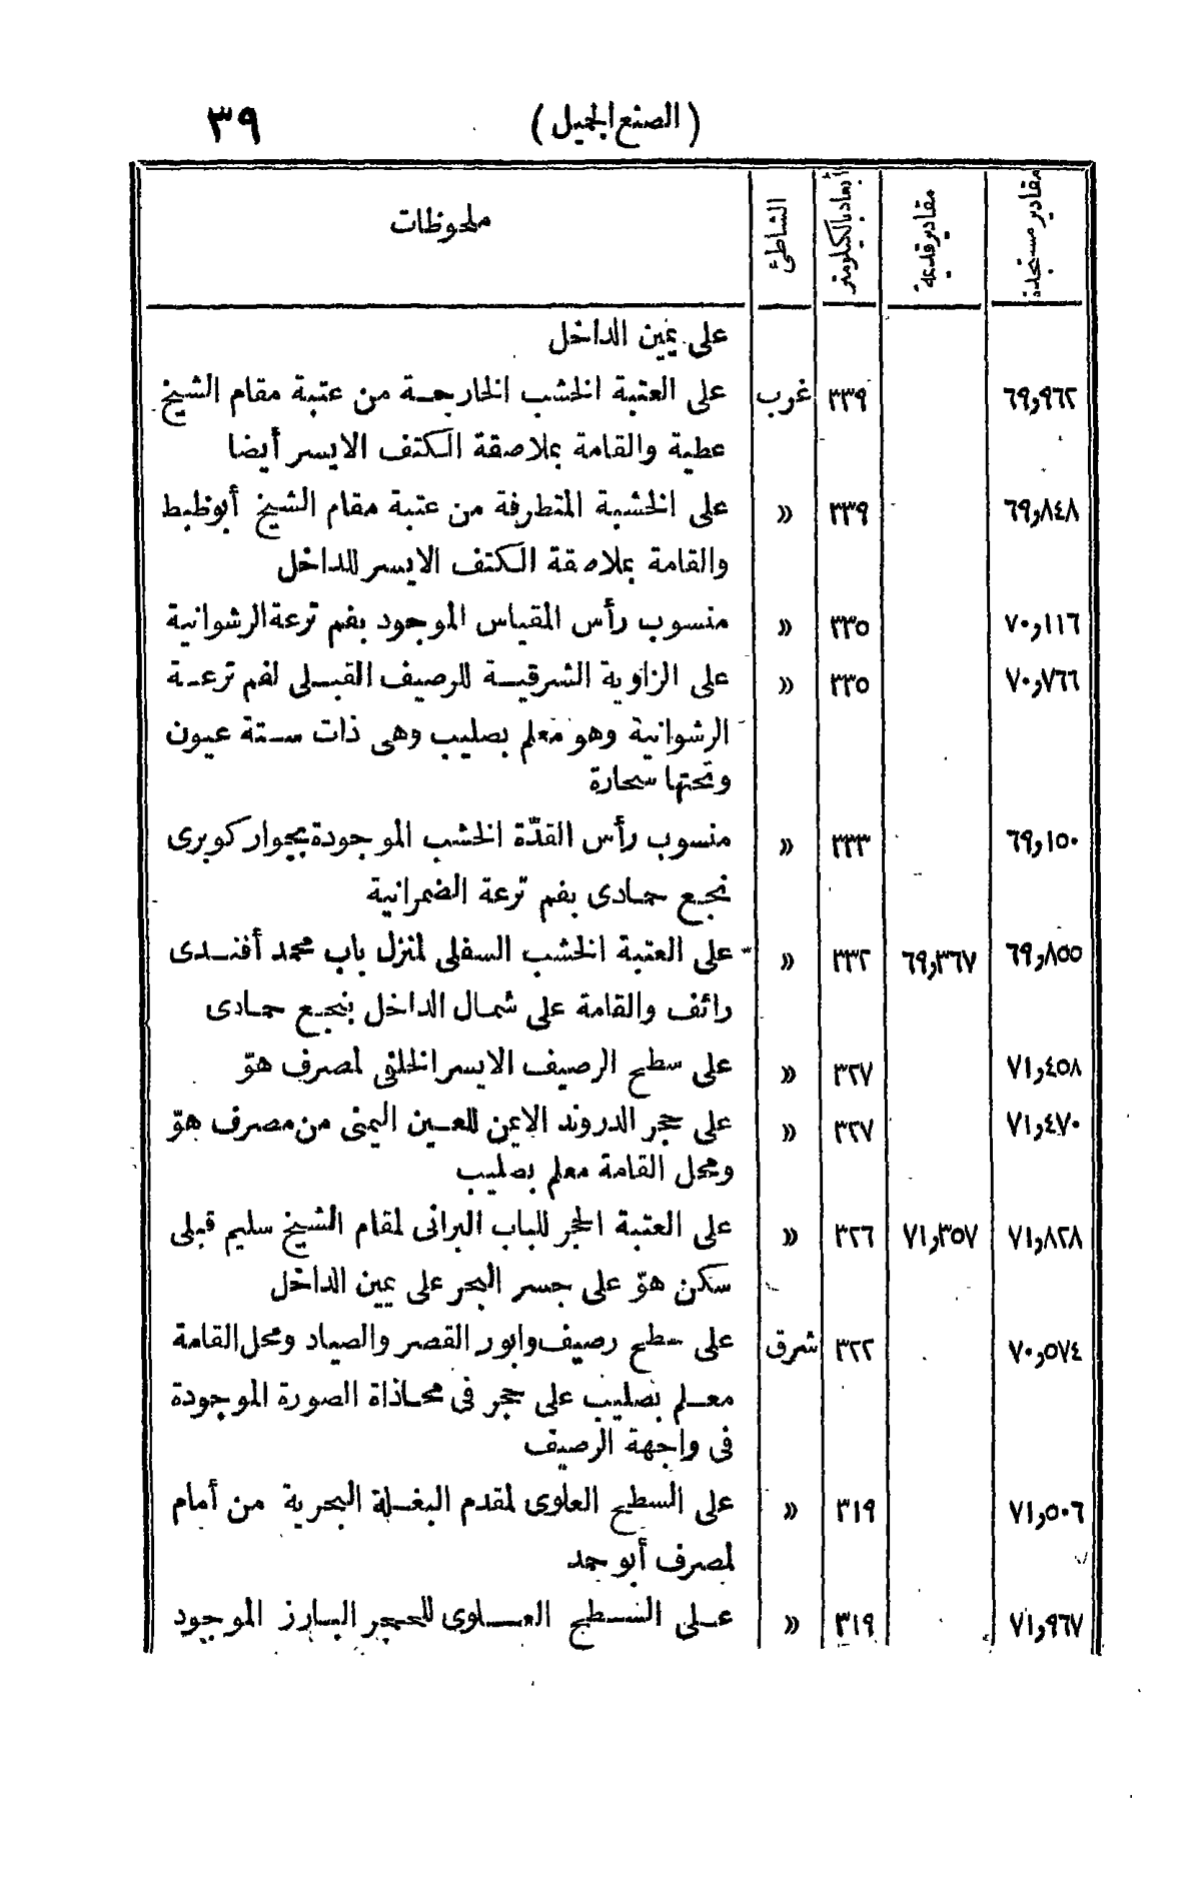 (الصنع الجميل) ٣٩
مقادير مستجدة | مقادير قديمة | أبعاد بالكيلومتر | الشاطئ | ملحوظات
على يمين الداخل
٦٩٫٩٦٢ | | ٣٣٩ | غرب | على العتبة الخشب الخارجة من عتبة مقام الشيخ
عطية والقامة بملاصقة الكتف الايسر أيضا
٦٩٫٨٤٨ | | ٣٣٩ | » | على الخشبة المتطرفة من عتبة مقام الشيخ أبوظبط
والقامة بملاصقة الكتف الايسر للداخل
٧٠٫١١٦ | | ٣٣٥ | » | منسوب رأس المقياس الموجود بفم ترعة الرشوانية
٧٠٫٧٦٦ | | ٣٣٥ | » | على الزاوية الشرقية للرصيف القبلى لفم ترعة
الرشوانية وهو معلم بصليب وهى ذات ستة عيون
وتحتها سحارة
٦٩٫١٥٠ | | ٣٣٣ | » | منسوب رأس القدّة الخشب الموجودة بجوار كوبرى
نجع حمادى بفم ترعة الضمرانية
٦٩٫٨٥٥ | ٦٩٫٣٦٧ | ٣٣٢ | » | على العتبة الخشب السفلى لمنزل باب محمد أفندى
رائف والقامة على شمال الداخل بنجع حمادى
٧١٫٤٥٨ | | ٣٢٧ | » | على سطح الرصيف الايسر الخلفى لمصرف هوّ
٧١٫٤٧٠ | | ٣٢٧ | » | على حجر الدروند الايمن للعين اليمنى من مصرف هوّ
ومحل القامة معلم بصليب
٧١٫٨٢٨ | ٧١٫٣٥٧ | ٣٢٦ | » | على العتبة الحجر للباب البرانى لمقام الشيخ سليم قبلى
سكن هوّ على جسر البحر على يمين الداخل
٧٠٫٥٧٤ | | ٣٢٢ | شرق | على سطح رصيف وابور القصر والصياد ومحل القامة
معلم بصليب على حجر فى محاذاة الصورة الموجودة
فى واجهة الرصيف
٧١٫٥٠٦ | | ٣١٩ | » | على السطح العلوى لمقدم البغلة البحرية من أمام
لمصرف أبو حمد
٧١٫٩٦٧ | | ٣١٩ | » | على السطح العلوى للحجر البارز الموجود